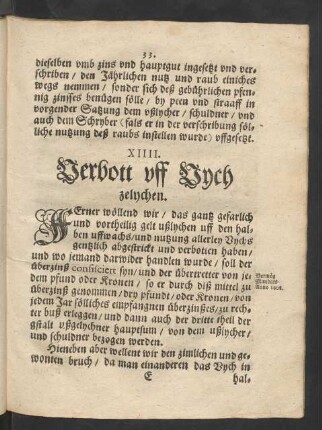 33.
dieselben vmb zins vnd hauptgut ingesetzt vnd ver-
schriben / den Jährlichen nutz vnd raub einiches
wegs nemmen / sonder sich deß gebührlichen pfen-
nig zinsses benügen sölle / by peen vnd straaff in
vorgender Satzung dem vßlycher / schuldner / vnd
auch dem Schryber (fals er in der verschribung söl-
liche nutzung deß raubs instellen wurde) vffgesetzt.
XIIII.
Verbott vff Vych
zelychen.
FErner wöllend wir / das gantz gefarlich
vnd vortheilig gelt ußlychen uff den hal-
ben uffwachs / und nutzung allerley Vychs
gentzlich abgestrickt und verbotten haben /
und wo jemand darwider handlen wurde / soll der
überzinß confisciert syn / und der übertretter von je-
dem pfund oder Kronen / so er durch diß mittel zu
überzinß genommen / dry pfundt / oder Kronen / von
jedem Jar sölliches empfangnen überzinßes / zu rech-
ter buß erleggen / und dann auch der dritte theil der
gstalt ußgelychner hauptsum / von dem ußlycher /
und schuldner bezogen werden.
Vermög
Mandats
Anno
Hieneben aber wellent wir den zimlichen und ge-
wonten bruch / da man einanderen das Vych in
E hal-